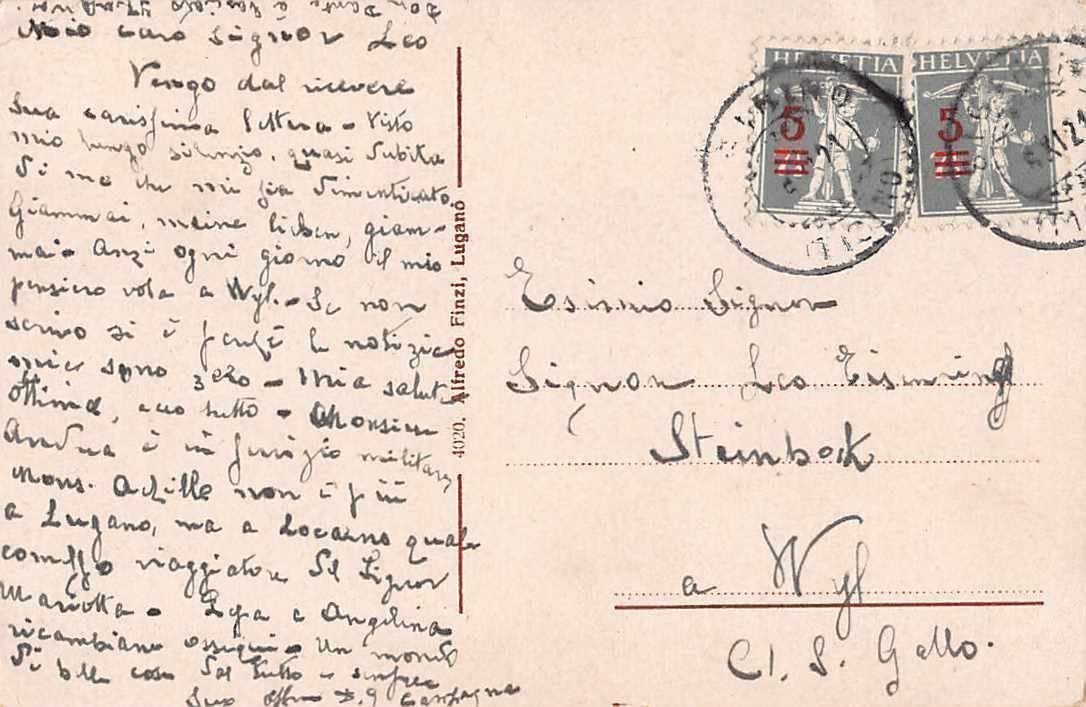 Mio caro Signor Leo
Vengo dal ricevere
sua carissima lettera - Visto
mio lungo silenzio, quasi dubita
di me che mi sia dimenticato.
Giammai, meine lieben, giam-
mai - Anzi ogni giorno il mio
pensiero vola a Wyl. - Se non
scrivo si è perchè le notizie
mie sono zero - Mia salute
ottima, ecco tutto - Monsieur
Andrea è in servizio militare,
Mons. Achille non è più
a Lugano, ma a Locarno quale
commesso viaggiatore del Signor
Mariotta - Lisa e Angelina
ricambiano ossequi - Un mondo
di belle cose dal tutto e sempre
Suo
Don Dante è
4020. Alfredo Finzi, Lugano
HELVETIA
5
HELVETIA
5
Esimio Signor
Signor Leo Eisenring
Steinbock
a Wyl
Ct. S. Gallo.